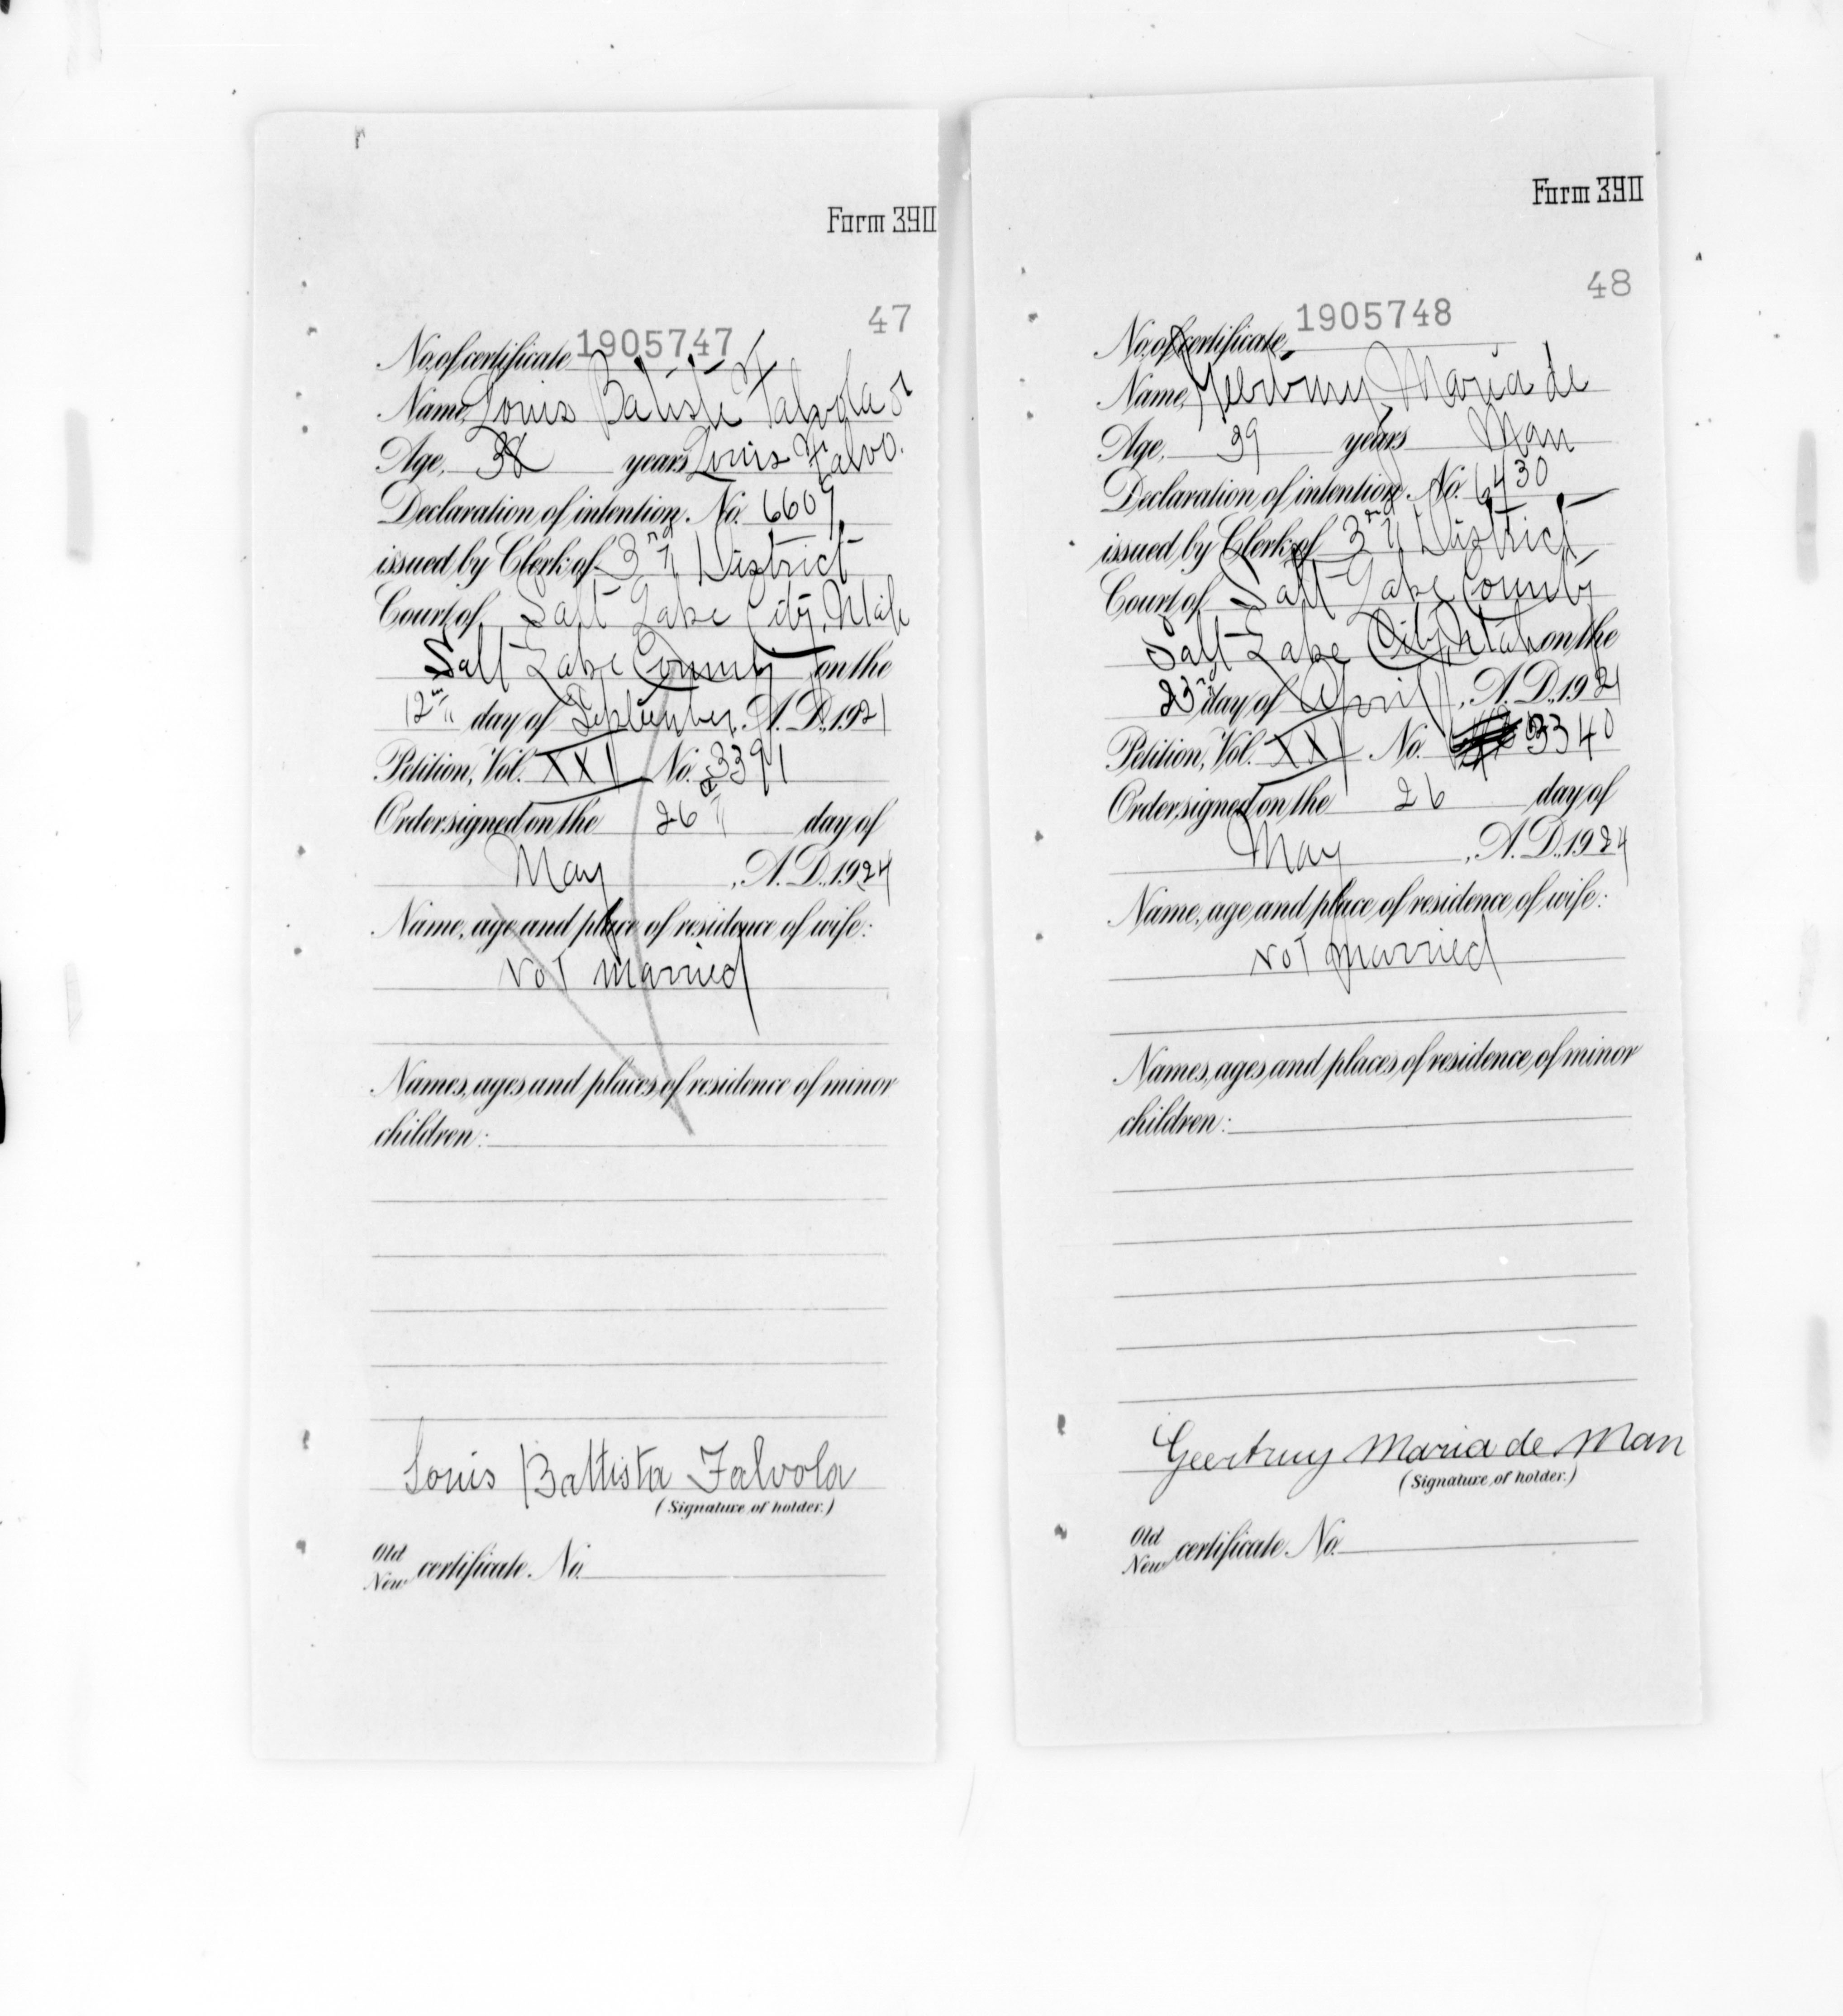 Form 390
47
No. of certificate 1905747
Name, Louis Batiste Falvola or
Age, 38 years Louis Falvo.
Declaration of intention. No. 6609,
issued by Clerk of 3rd District
Court of Salt Lake City, Utah
Salt Lake County on the
12th day of September, A. D., 1921
Petition, Vol. XXI No. 3391
Order signed on the 26 day of
May, A. D., 1924
Name, age and place of residence of wife:
Not married
Names, ages and places of residence of minor
children:
Louis Battista Falvola
(Signature of holder.)
Old
New certificate. No.
Form 390
48
No. of certificate, 1905748
Name, Geertruy Maria de
Age, 39 years Man
Declaration of intention. No. 6430,
issued by Clerk of 3rd District
Court of Salt Lake County
Salt Lake City, Utah on the
23rd day of April, A. D., 1921
Petition, Vol. XXI No. 3340
Order signed on the 26 day of
May, A. D., 1924
Name, age and place of residence of wife:
Not married
Names, ages and places of residence of minor
children:
Geertruy Maria de Man
(Signature of holder.)
Old
New certificate. No.